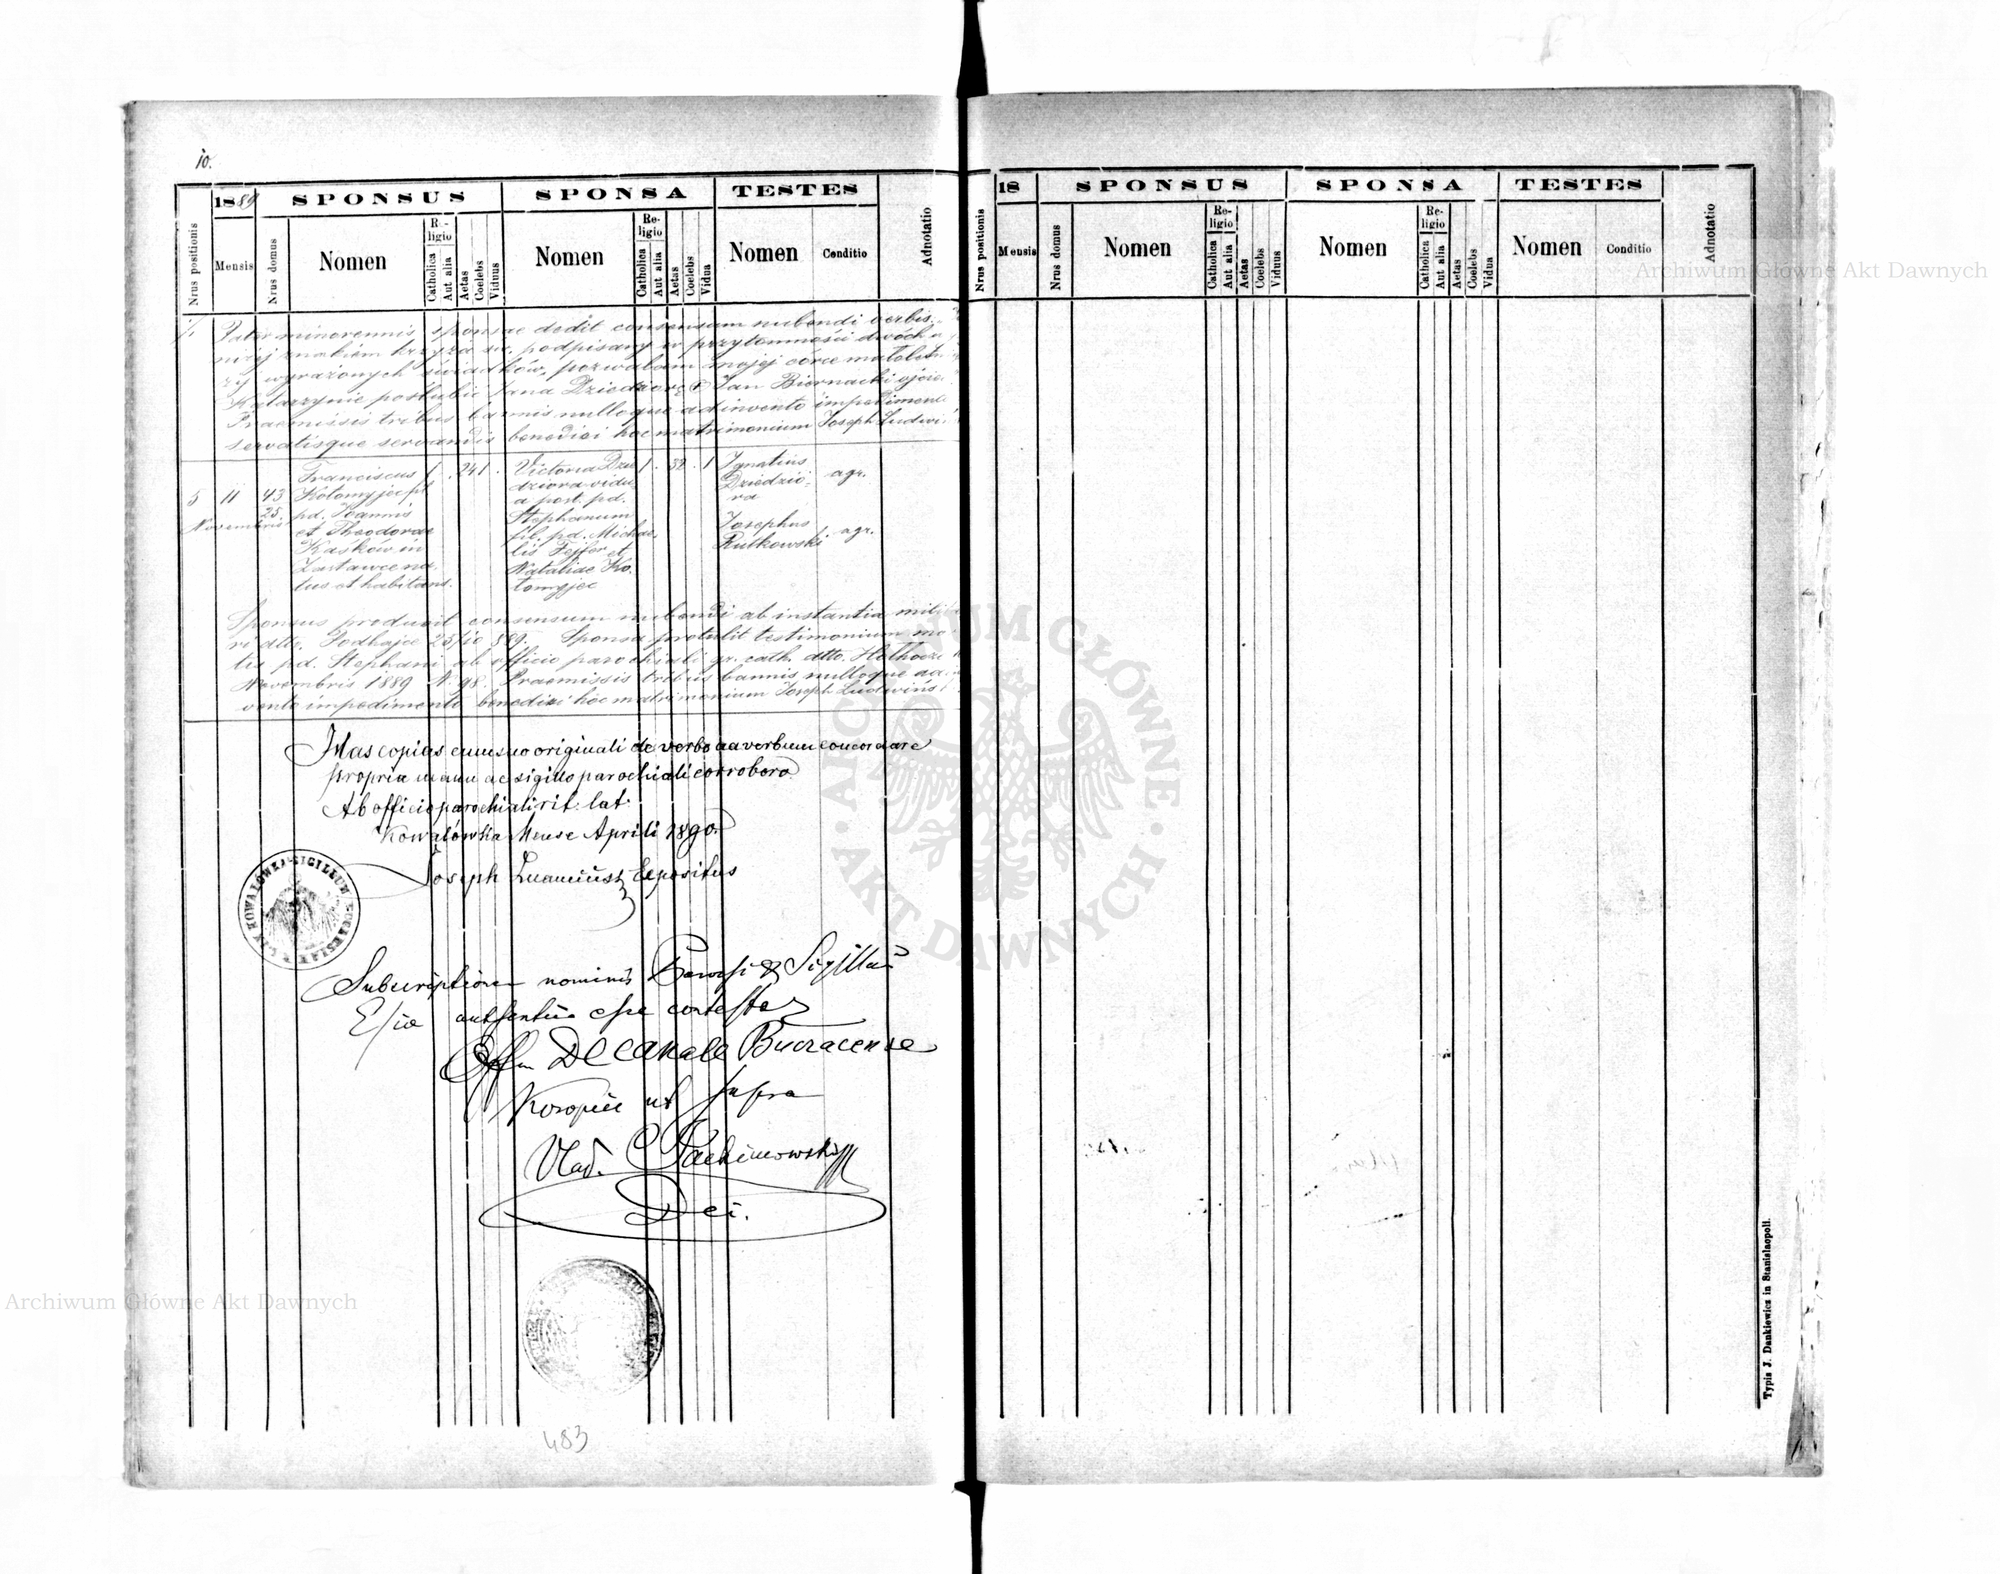 10.
1889
SPONSUS
SPONSA
TESTES
Nrus positionis
Mensis
Nrus domus
Nomen
Religio
Catholica
Aut alia
Aetas
Coelebs
Viduus
Nomen
Religio
Catholica
Aut alia
Aetas
Coelebs
Vidua
Nomen
Conditio
Adnotatio
Pater minorennis sponsae dedit consensum nubendi verbis:
niżej znakiem krzyża św. podpisany w przytomności dwóch
wyrażonych świadków, pozwalam mojej córce małolet
Katarzynie poślubić Jana Dziedziorę Jan Biernacki ojciec
Praemissis tribus bannis nulloque adinvento impedimento
servatisque servandis benedixi hoc matrimonium Joseph Ludwi
5
11
Novembris
43
25.
Franciscus
Kołomyjec fil.
pd. Joannis
et Theodorae
Kaśków in
Zastawce na
tus et habitans.
1
24
1
Victoria Dzie
dziora vidu
a post. pd.
Stephanum
fil. pd. Micha
lis Fejfer et
Nataliae Ko
łomyjec
1
32
1
Ignatius
Dziedzio
ra
agr.
Josephus
Rutkowski
agr.
Sponsus produxit consensum nubendi ab instantia milita
ri dtto. Podhajce 25/10 889. Sponsa protulit testimonium mor
tis pd. Stephani ab officio parochiali gr. cath. dtto.
Novembris 1889 N. 98. Praemissis tribus bannis nulloque
vento impedimento benedixi hoc matrimonium Joseph Ludwińs
Has copias cum suo originali de verbo ad verbum concordare
propria manu ac sigillo parochiali corroboro.
Ab officio parochiali rit. lat.
Kowalówka Mense Aprili 1890.
Joseph expositus
KOWALÓWKA SIGILLUM ECCLESIAE
Subscriptionem nominis Parochi & Sigillum
Ejus authenticum esse contestor
Offm Decanale Buczacense
Koropiec ut supra
Vlad.
Dec.
483
18
SPONSUS
SPONSA
TESTES
Nrus positionis
Mensis
Nrus domus
Nomen
Religio
Catholica
Aut alia
Aetas
Coelebs
Viduus
Nomen
Religio
Catholica
Aut alia
Aetas
Coelebs
Vidua
Nomen
Conditio
Adnotatio
Typis J. Dankiewicz in Stanislaopoli.
Archiwum Główne Akt Dawnych
Archiwum Główne Akt Dawnych
ARCHIWUM GŁÓWNE · AKT DAWNYCH ·